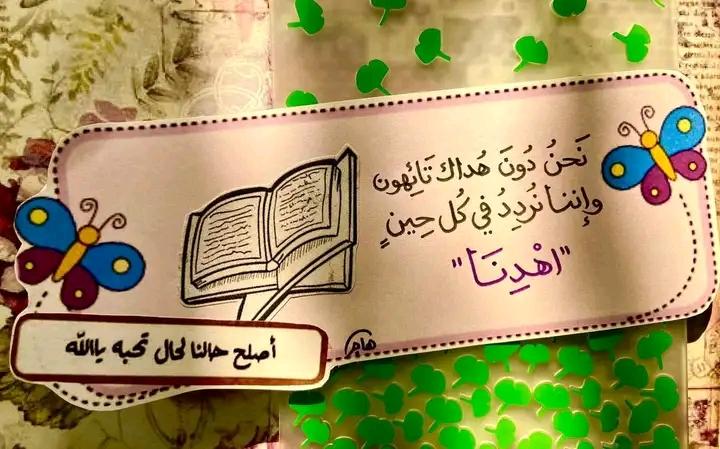 نَحنُ دُونَ هُداك تَائِهون
وإننا نُردِدُ في كُل حِينٍ
"اهْدِنَا"
أصلح حالنا لحال تحبه ياالله